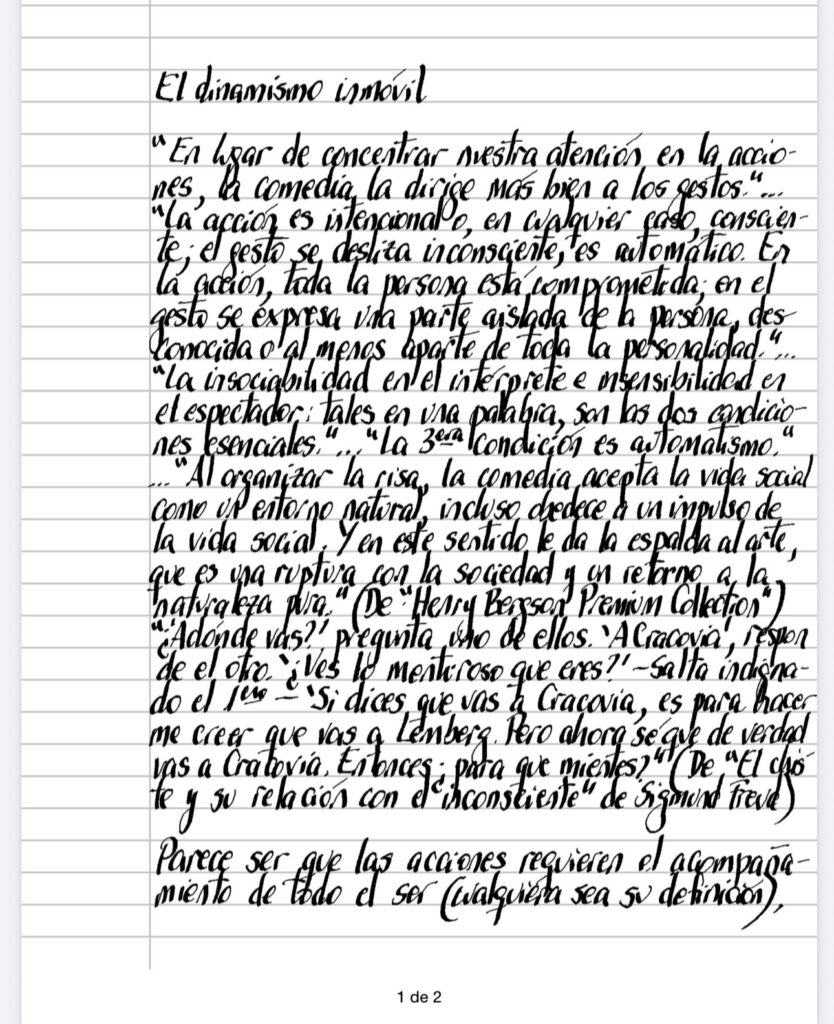 El dinamismo inmóvil
"En lugar de concentrar nuestra atención en la accio-
nes, la comedia la dirige más bien a los gestos."...
"La acción es intencional o, en cualquier caso, conscien-
te; el gesto se desliza inconsciente, es automático. En
la acción, toda la persona está comprometida; en el
gesto se expresa una parte aislada de la persona, des
conocida o al menos aparte de toda la personalidad."...
"La insociabilidad en el intérprete e insensibilidad en
el espectador: tales en una palabra, son las dos condicio-
nes esenciales."..."La 3era condición es automatismo."
..."Al organizar la risa, la comedia acepta la vida social
como un entorno natural, incluso obedece a un impulso de
la vida social. Y en este sentido le da la espalda al arte,
que es una ruptura con la sociedad y un retorno a la
naturaleza pura." (De "Henry Bergson Premium Collection")
"¿Adónde vas?' pregunta uno de ellos. 'A Cracovia', respon
de el otro. '¿Ves lo mentiroso que eres?' - Salta indigna-
do el 1ero - 'Si dices que vas a Cracovia, es para hacer
me creer que vas a Lemberg. Pero ahora sé que de verdad
vas a Cracovia. Entonces ¿para que mientes?'" (De "El chis
te y su relación con el inconsciente" de Sigmund Freud)
Parece ser que las acciones requieren el acompaña-
miento de todo el ser (cualquiera sea su definición),
1 de 2